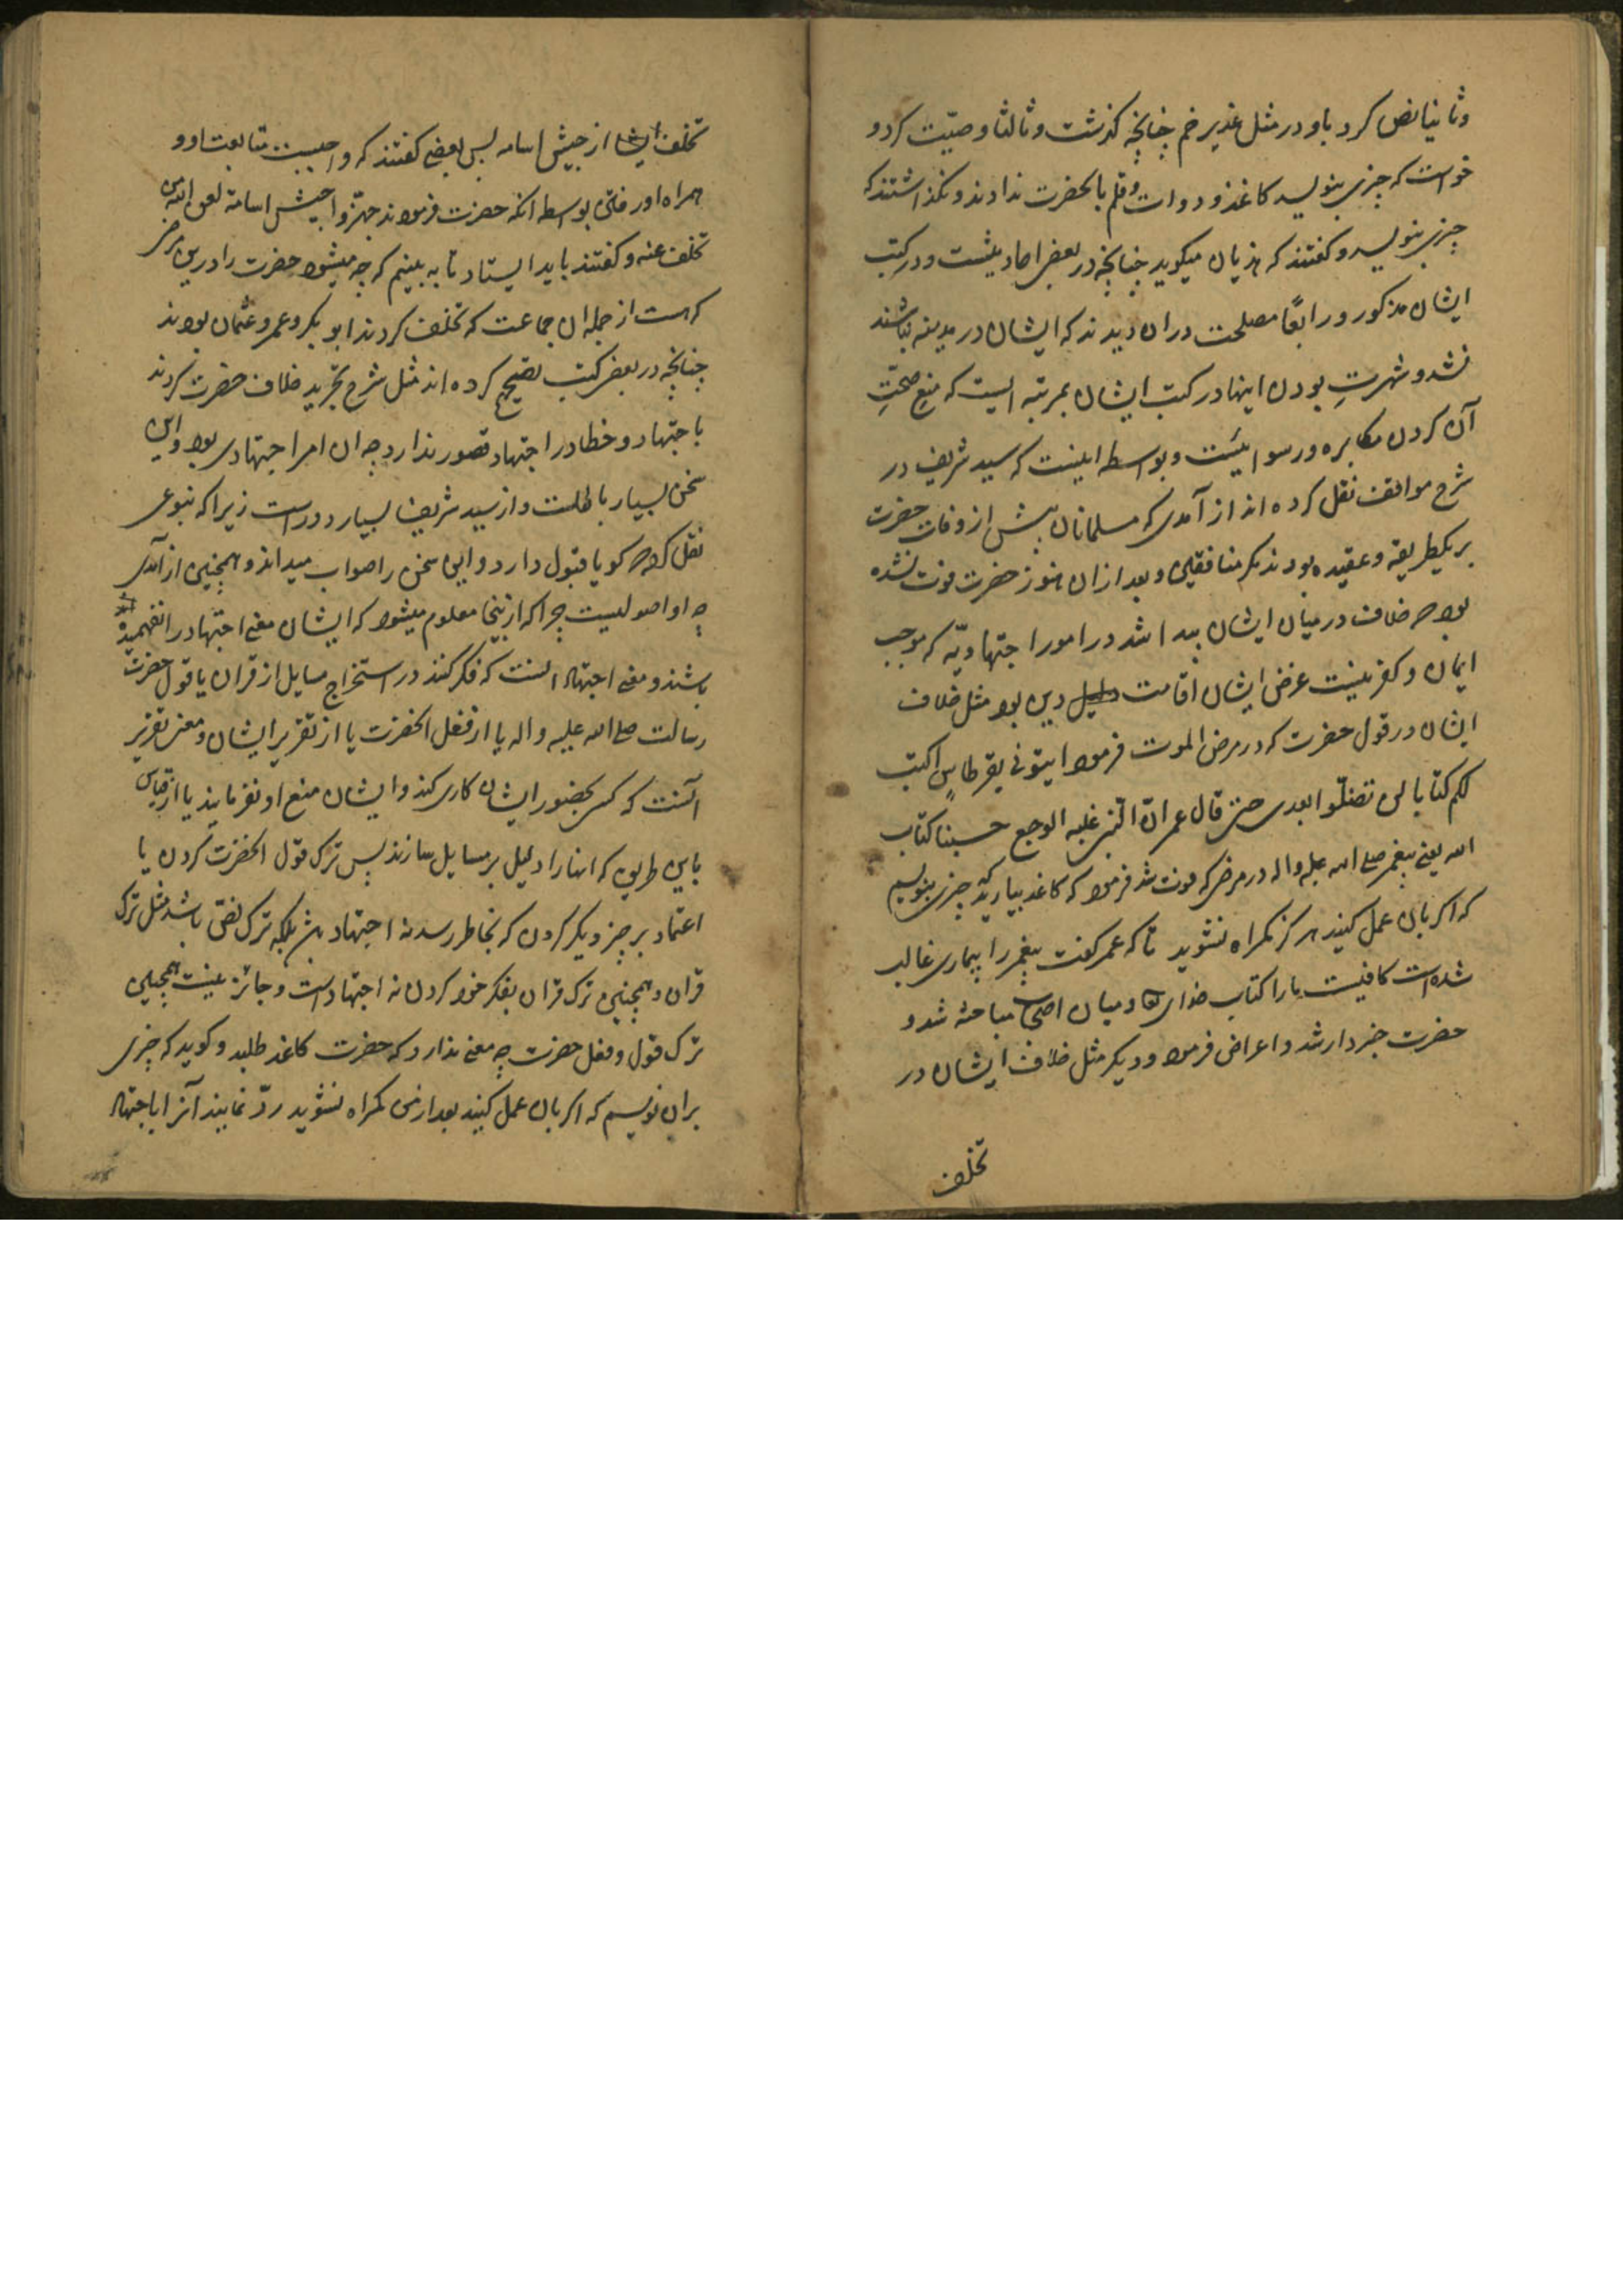 وثانیا نص کرد باو در مثل غدیر خم چنانچه کذشت وثالثا وصیّت کرد و
خواست که چیزی بنویسد کاغذ و دوات وقلم بانحضرت ندادند ونکذاشتند که
چیزی بنویسد وکفتند که هذیان میکوید چنانچه در بعض احادیثست ودر کتب
ایشان مذکور ورابعًا مصلحت دران دیدند که ایشان در مدینه نباشند
نشد وشهرتِ بودن اینها در کتب ایشان بمرتبه ایست که منع صحّتِ
آن کردن مکابره ورسوائیست وبواسطه اینست که سید شریف در
شرح مواقف نقل کرده اند از آمدی که مسلمانان پیش از وفات حضرت
بریکطریقه وعقیده بودند مکر منافقین وبعد ازان هنوز حضرت فوت نشده
بود که خلاف در میان ایشان پیدا شد در امور اجتهادیّه که موجب
ایمان وکفر نیست غرض ایشان اقامت دین بود مثل خلاف
ایشان در قول حضرت که در مرض الموت فرمود ایتونی بقرطاسٍ اکتب
لکم کتابا لن تضلّوا بعدی حتی قال عمر انّ النّبی غلبه الوجع حسبنا کتاب
الله یعنی پیغمبر صلی الله علیه واله در مرضی که فوت شد فرمود که کاغذ بیارید که چیزی بنویسم
که اکر بان عمل کنید هرکز کمراه نشوید تا که عمر کفت پیغمبر را بیماری غالب
شده است کافیست مارا کتاب خدای تعا ومیان اصحاب مباحثه شد و
حضرت خبردار شد واعراض فرمود ودیکر مثل خلاف ایشان در
تخلف
تخلف ایشان از جیش اسامه پس بعضی کفتند که واجبست متابعت او و
همراه او رفتن بواسطه انکه حضرت فرمودند جهّزوا جیش اسامة لعن الله من
تخلف عنه وکفتند باید ایستاد تا به بینیم که چه میشود حضرت را درین مرض
که هست از جمله ان جماعت که تخلف کردند ابو بکر وعمر وعثمان بودند
چنانچه در بعض کتب تصحیح کرده اند مثل شرح تجرید خلاف حضرت کردند
باجتهاد وخطا در اجتهاد قصور ندارد چه ان امر اجتهادی بود واین
سخن بسیار باطلست واز سید شریف بسیار دوراست زیرا که بنوعی
نقل کرده که کویا قبول دارد واین سخن را صواب میداند وهمچنین از آمدی
چه او اصولیست چرا که ازینجا معلوم میشود که ایشان معنی اجتهاد را نفهمیده
باشند ومعنی اجتهاد انست که فکر کنند در استخراج مسایل از قران یا قول حضرت
رسالت صلی الله علیه واله یا از فعل انحضرت یا از تقریر ایشان ومعنی تقریر
انست که کسی بحضور ایشان کاری کند وایشان منع او نفرمایند یا از قیاس
باین طریق که انها را دلیل بر مسایل سازند پس ترک قول انحضرت کردن یا
اعتماد بر چیز دیکر کردن که بخاطر رسد نه اجتهاد باشد بلکه ترک نص باشد مثل ترک
قران وهمچنین ترک قران بفکر خود کردن نه اجتهاد است وجائز نیست همچنین
ترک قول وفعل حضرت چه معنی ندارد که حضرت کاغذ طلبد وکوید که چیزی
بران نویسم که اکر بان عمل کنید بعد از من کمراه نشوید ردّ نمایند آنرا باجتهاد